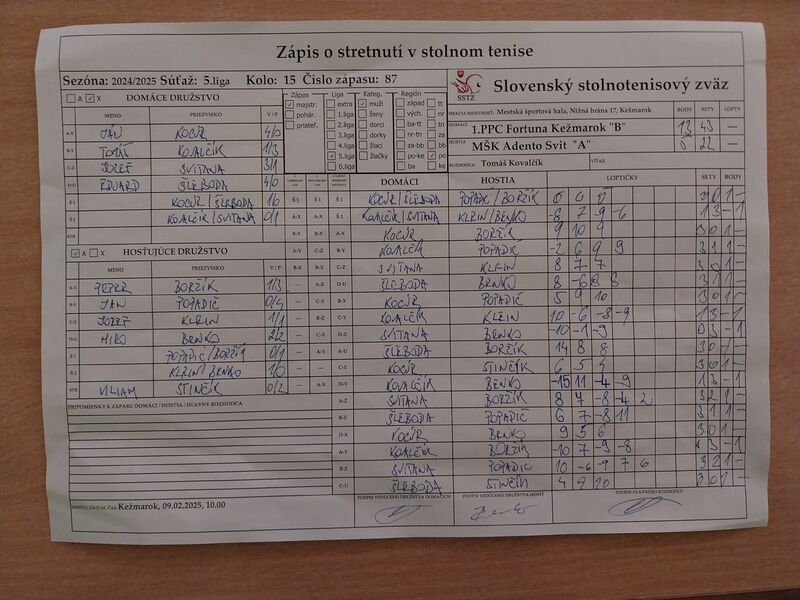 Zápis o stretnutí v stolnom tenise
Sezóna: 2024/2025 Súťaž: 5.liga Kolo: 15 Číslo zápasu: 87
SSTZ Slovenský stolnotenisový zväz
HRACIA MIESTNOSŤ: Mestská športová hala, Nižná brána 17, Kežmarok BODY SETY LOPTY
DOMÁCI 1.PPC Fortuna Kežmarok "B" 13 43 —
HOSTIA MŠK Adento Svit "A" 5 22 —
ROZHODCA: Tomáš Kovalčík VÍŤAZ:
Zápas Liga Kateg. Región
majstr. extra muži západ tt
pohár. 1.liga ženy vých. nr
priateľ. 2.liga dorci ba-tt tn
3.liga dorky nr-tn za
4.liga žiaci za-bb bb
5.liga žiačky po-ke po
6.liga ba ke
A X DOMÁCE DRUŽSTVO
MENO PRIEZVISKO V/P
A-X JÁN KOCÚR 4/0
B-Y TOMÁŠ KOVALČÍK 1/3
C-Z JOZEF SVITANA 3/1
D-U EDUARD ŠLEBODA 4/0
Š1 KOCÚR/ŠLEBODA 1/0
Š2 KOVALČÍK/SVITANA 0/1
STR
A X HOSŤUJÚCE DRUŽSTVO
MENO PRIEZVISKO V/P
A-X PETER BORŽÍK 1/3
B-Y JÁN POPADIČ 0/4
C-Z JOZEF KLEIN 1/1
D-U MIRO BRNKO 2/2
Š1 POPADIČ/BORŽÍK 0/1
Š2 KLEIN/BRNKO 1/0
STR VILIAM STINČÍK 0/2
PRIPOMIENKY K ZÁPASU DOMÁCI / HOSTIA / HLAVNÝ ROZHODCA
MIESTO, DÁTUM, ČAS: Kežmarok, 09.02.2025, 10.00
DOMÁCI HOSTIA LOPTIČKY SETY BODY
Š1 KOCÚR/ŠLEBODA POPADIČ/BORŽÍK 3 0 1 —
Š2 KOVALČÍK/SVITANA KLEIN/BRNKO -8 7 -9 -6 1 3 — 1
A-X KOCÚR BORŽÍK 9 10 9 3 0 1 —
B-Y KOVALČÍK POPADIČ -2 6 9 9 3 1 1 —
C-Z SVITANA KLEIN 8 7 7 3 0 1 —
D-U ŠLEBODA BRNKO 8 -6 8 6 3 1 1 —
A-Y KOCÚR POPADIČ 5 9 10 3 0 1 —
KOVALČÍK KLEIN 10 -6 -8 -9 1 3 — 1
SVITANA BRNKO -10 -1 -9 0 3 — 1
A-U ŠLEBODA BORŽÍK 14 8 8 3 0 1 —
C-X KOCÚR STINČÍK 6 5 5 3 0 1 —
D-Y KOVALČÍK BRNKO -15 11 -4 -9 1 3 — 1
A-Z SVITANA BORŽÍK 8 7 -8 -4 2 3 2 1 —
B-U ŠLEBODA POPADIČ 6 7 -8 11 3 1 1 —
D-X KOCÚR BRNKO 9 5 6 3 0 1 —
A-Y KOVALČÍK BORŽÍK -10 7 -9 -8 1 3 — 1
B-Z SVITANA POPADIČ 10 -6 -9 7 6 3 2 1 —
C-U ŠLEBODA STINČÍK 4 9 10 3 0 1 —
PODPIS VEDÚCEHO DRUŽSTVA DOMÁCICH PODPIS VEDÚCEHO DRUŽSTVA HOSTÍ PODPIS HLAVNÉHO ROZHODCU